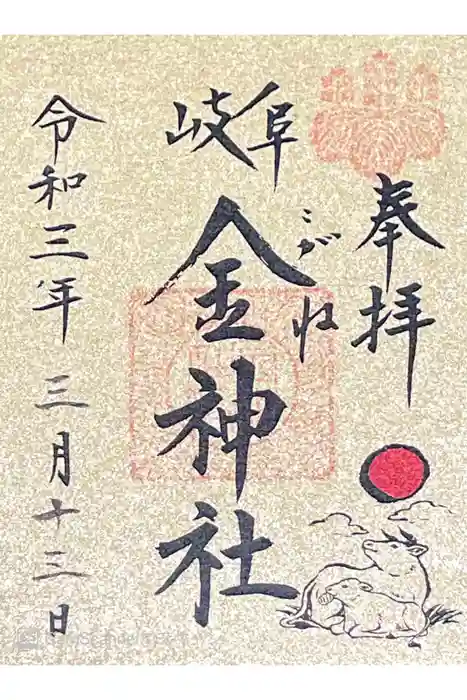 奉拝
岐阜
こがね
金神社
令和三年 三月十三日